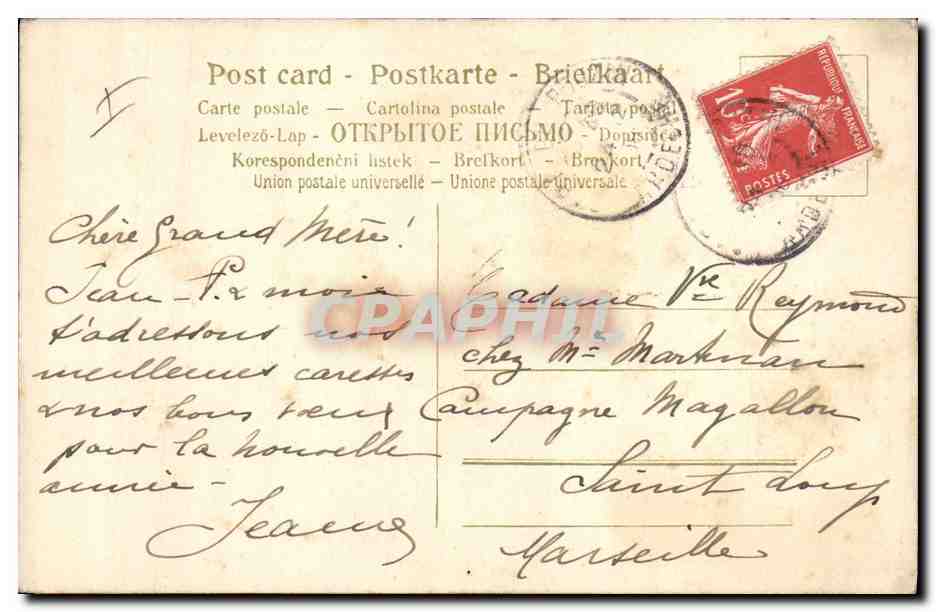 Post card - Postkarte - Briefkaart
Carte postale — Cartolina postale — Tarjeta postal
Levelező-Lap - ОТКРЫТОЕ ПИСЬМО - Dopisnice
Korespondenční lístek - Brefkort - Brevkort
Union postale universelle - Unione postale universale
RÉPUBLIQUE FRANÇAISE
POSTES
Chère Grand Mère!
Jean-P. & moi
t'adressons nos
meilleures caresses
& nos bons vœux
pour la nouvelle
année-
Jeanne
Madame Vve Reymond
chez Mr
Campagne Magallon
Saint Loup
Marseille
CPAPHIL